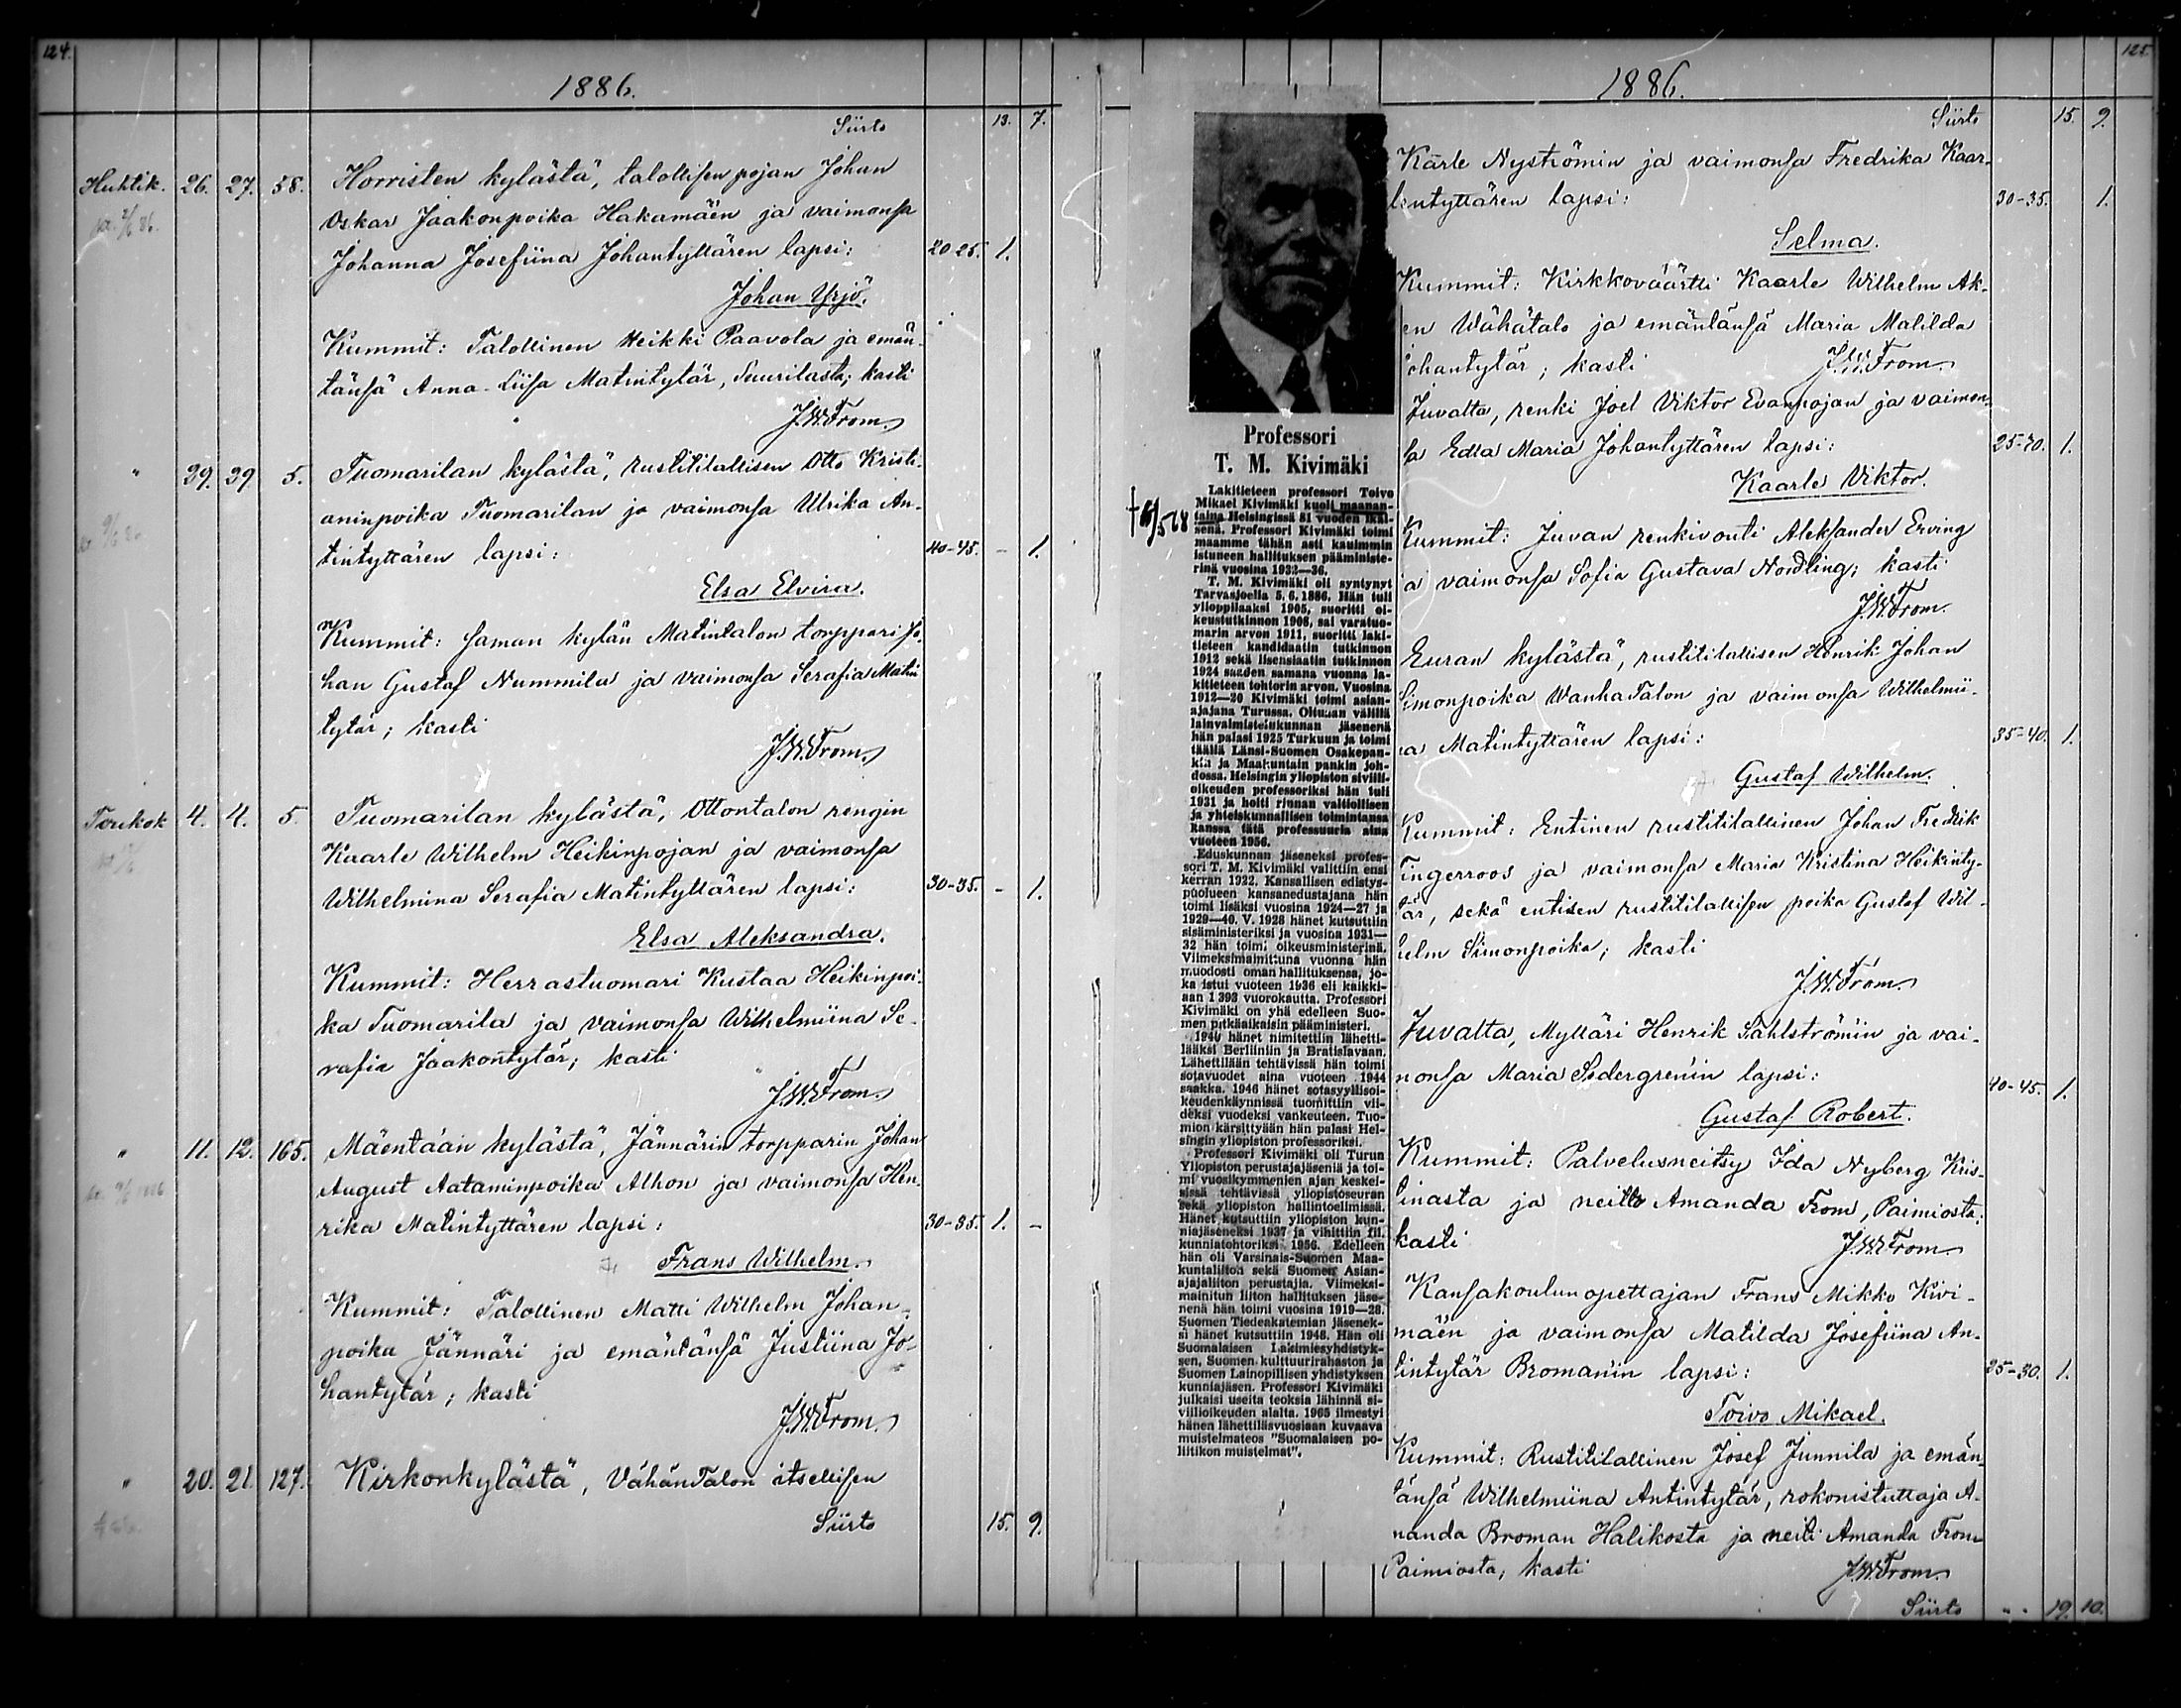 124.
1886.
Siirto 13. 7.
Huhtik. 26. 27. 58. Horristen kylästä, talollisen pojan Johan
Oskar Jaakonpoika Hakamäen ja vaimonsa
Johanna Josefiina Johantyttären lapsi: 20-25. 1.
Johan Yrjö.
Kummit: Talollinen Heikki Paavola ja emän-
tänsä Anna-Liisa Matintytär, Suurilasta; kasti
J.W.From.
" 29. 29. 5. Tuomarilan kylästä, rustitilallisen Otto Kristi-
aninpoika Tuomarilan ja vaimonsa Ulrika An-
tintyttären lapsi: 40-45. - 1.
Elsa Elvira.
Kummit: saman kylän Matintalon torppari Jo-
han Gustaf Nummila ja vaimonsa Serafia Matin
tytär; kasti
J.W.From.
Toukok 4. 4. 5. Tuomarilan kylästä, Ottontalon rengin
Kaarle Wilhelm Heikinpojan ja vaimonsa
Wilhelmina Serafia Matintyttären lapsi: 30-35. - 1.
Elsa Aleksandra.
Kummit: Herrastuomari Kustaa Heikinpoi-
ka Tuomarila ja vaimonsa Wilhelmiina Se-
rafia Jaakontytär; kasti
J.W.From.
" 11. 12. 165. Mäentaan kylästä, Jännärin torpparin Johan
August Aataminpoika Alhon ja vaimonsa Hen-
rika Matintyttären lapsi: 30-35. 1. -
Frans Wilhelm.
Kummit: Talollinen Matti Wilhelm Johan-
poika Jännäri ja emäntänsä Justiina Jo-
hantytär; kasti
J.W.From.
" 20. 21. 127. Kirkonkylästä, VähänTalon itsellisen
Siirto 15. 9.
Professori
T. M. Kivimäki
Lakitieteen professori Toivo
Mikael Kivimäki kuoli maanan-
taina Helsingissä 81 vuoden ikäi-
senä. Professori Kivimäki toimi
maamme tähän asti kauimmin
istuneen hallituksen pääministe-
rinä vuosina 1932—36.
T. M. Kivimäki oli syntynyt
Tarvasjoella 5. 6. 1886. Hän tuli
ylioppilaaksi 1905, suoritti oi-
keustutkinnon 1908, sai varatuo-
marin arvon 1911, suoritti laki-
tieteen kandidaatin tutkinnon
1912 sekä lisensiaatin tutkinnon
1924 saaden samana vuonna la-
kitieteen tohtorin arvon. Vuosina
1912—20 Kivimäki toimi asian-
ajajana Turussa. Oltuaan välillä
lainvalmistelukunnan jäsenenä
hän palasi 1925 Turkuun ja toimi
täällä Länsi-Suomen Osakepan-
kin ja Maakuntain pankin joh-
dossa. Helsingin yliopiston siviili-
oikeuden professoriksi hän tuli
1931 ja hoiti rinnan valtiollisen
ja yhteiskunnallisen toimintansa
kanssa tätä professuuria aina
vuoteen 1956.
Eduskunnan jäseneksi profes-
sori T. M. Kivimäki valittiin ensi
kerran 1922. Kansallisen edistys-
puolueen kansanedustajana hän
toimi lisäksi vuosina 1924—27 ja
1929—40. V. 1928 hänet kutsuttiin
sisäministeriksi ja vuosina 1931—
32 hän toimi oikeusministerinä.
Viimeksimainittuna vuonna hän
muodosti oman hallituksensa, jo-
ka istui vuoteen 1936 eli kaikki-
aan 1 393 vuorokautta. Professori
Kivimäki on yhä edelleen Suo-
men pitkäaikaisin pääministeri.
1940 hänet nimitettiin lähetti-
lääksi Berliiniin ja Bratislavaan.
Lähettilään tehtävissä hän toimi
sotavuodet aina vuoteen 1944
saakka. 1946 hänet sotasyyllisoi-
keudenkäynnissä tuomittiin vii-
deksi vuodeksi vankeuteen. Tuo-
mion kärsittyään hän palasi Hel-
singin yliopiston professoriksi.
Professori Kivimäki oli Turun
Yliopiston perustajajäseniä ja toi-
mi vuosikymmenien ajan keskei-
sissä tehtävissä yliopistoseuran
sekä yliopiston hallintoelimissä.
Hänet kutsuttiin yliopiston kun-
niajäseneksi 1937 ja vihittiin fil.
kunniatohtoriksi 1956. Edelleen
hän oli Varsinais-Suomen Maa-
kuntaliiton sekä Suomen Asian-
ajajaliiton perustajia. Viimeksi-
mainitun liiton hallituksen jäse-
nenä hän toimi vuosina 1919—28.
Suomen Tiedeakatemian jäsenek-
si hänet kutsuttiin 1948. Hän oli
Suomalaisen Lakimiesyhdistyk-
sen, Suomen kulttuurirahaston ja
Suomen Lainopillisen yhdistyksen
kunniajäsen. Professori Kivimäki
julkaisi useita teoksia lähinnä si-
viilioikeuden alalta. 1965 ilmestyi
hänen lähettiläsvuosiaan kuvaava
muistelmateos "Suomalaisen po-
liitikon muistelmat".
125.
1886.
Siirto 15. 9.
Karle Nyströmin ja vaimonsa Fredrika Kaar-
lentyttären lapsi: 30-35. 1.
Selma.
Kummit: Kirkkoväärtti Kaarle Wilhelm Ak-
en Wähätalo ja emäntänsä Maria Matilda
ohantytär; kasti J.W.From.
Juvalta, renki Joel Viktor Evanpojan ja vaimon-
sa Edla Maria Johantyttären lapsi: 25-30. 1.
Kaarle Viktor.
Kummit: Juvan renkivouti Aleksander Erving
a vaimonsa Sofia Gustava Nordling; kasti
J.W.From.
Euran kylästä, rustitilallisen Henrik Johan
Simonpoika WanhaTalon ja vaimonsa Wilhelmii-
na Matintyttären lapsi: 35-40. 1.
Gustaf Wilhelm.
Kummit: Entinen rustitilallinen Johan Fredrik
Fingerroos ja vaimonsa Maria Kristina Heikinty-
tär, sekä entisen rustitilallisen poika Gustaf Wil-
helm Simonpoika; kasti
J.W.From.
Juvalta, Mylläri Henrik Sahlströmin ja vai-
monsa Maria Södergrenin lapsi: 40-45. 1.
Gustaf Robert.
Kummit: Palvelusneitsy Ida Nyberg Kris-
tinasta ja neitto Amanda From, Paimiosta;
kasti J.W.From
Kansakoulun opettajan Frans Mikko Kivi-
mäen ja vaimonsa Matilda Josefiina An-
tintytär Bromanin lapsi: 25-30. 1.
Toivo Mikael.
Kummit: Rustitilallinen Josef Junnila ja emän-
tänsä Wilhelmiina Antintytär, rokonistuttaja A-
manda Broman Halikosta ja neiti Amanda From
Paimiosta; kasti J.W.From.
Siirto " " 19. 10.